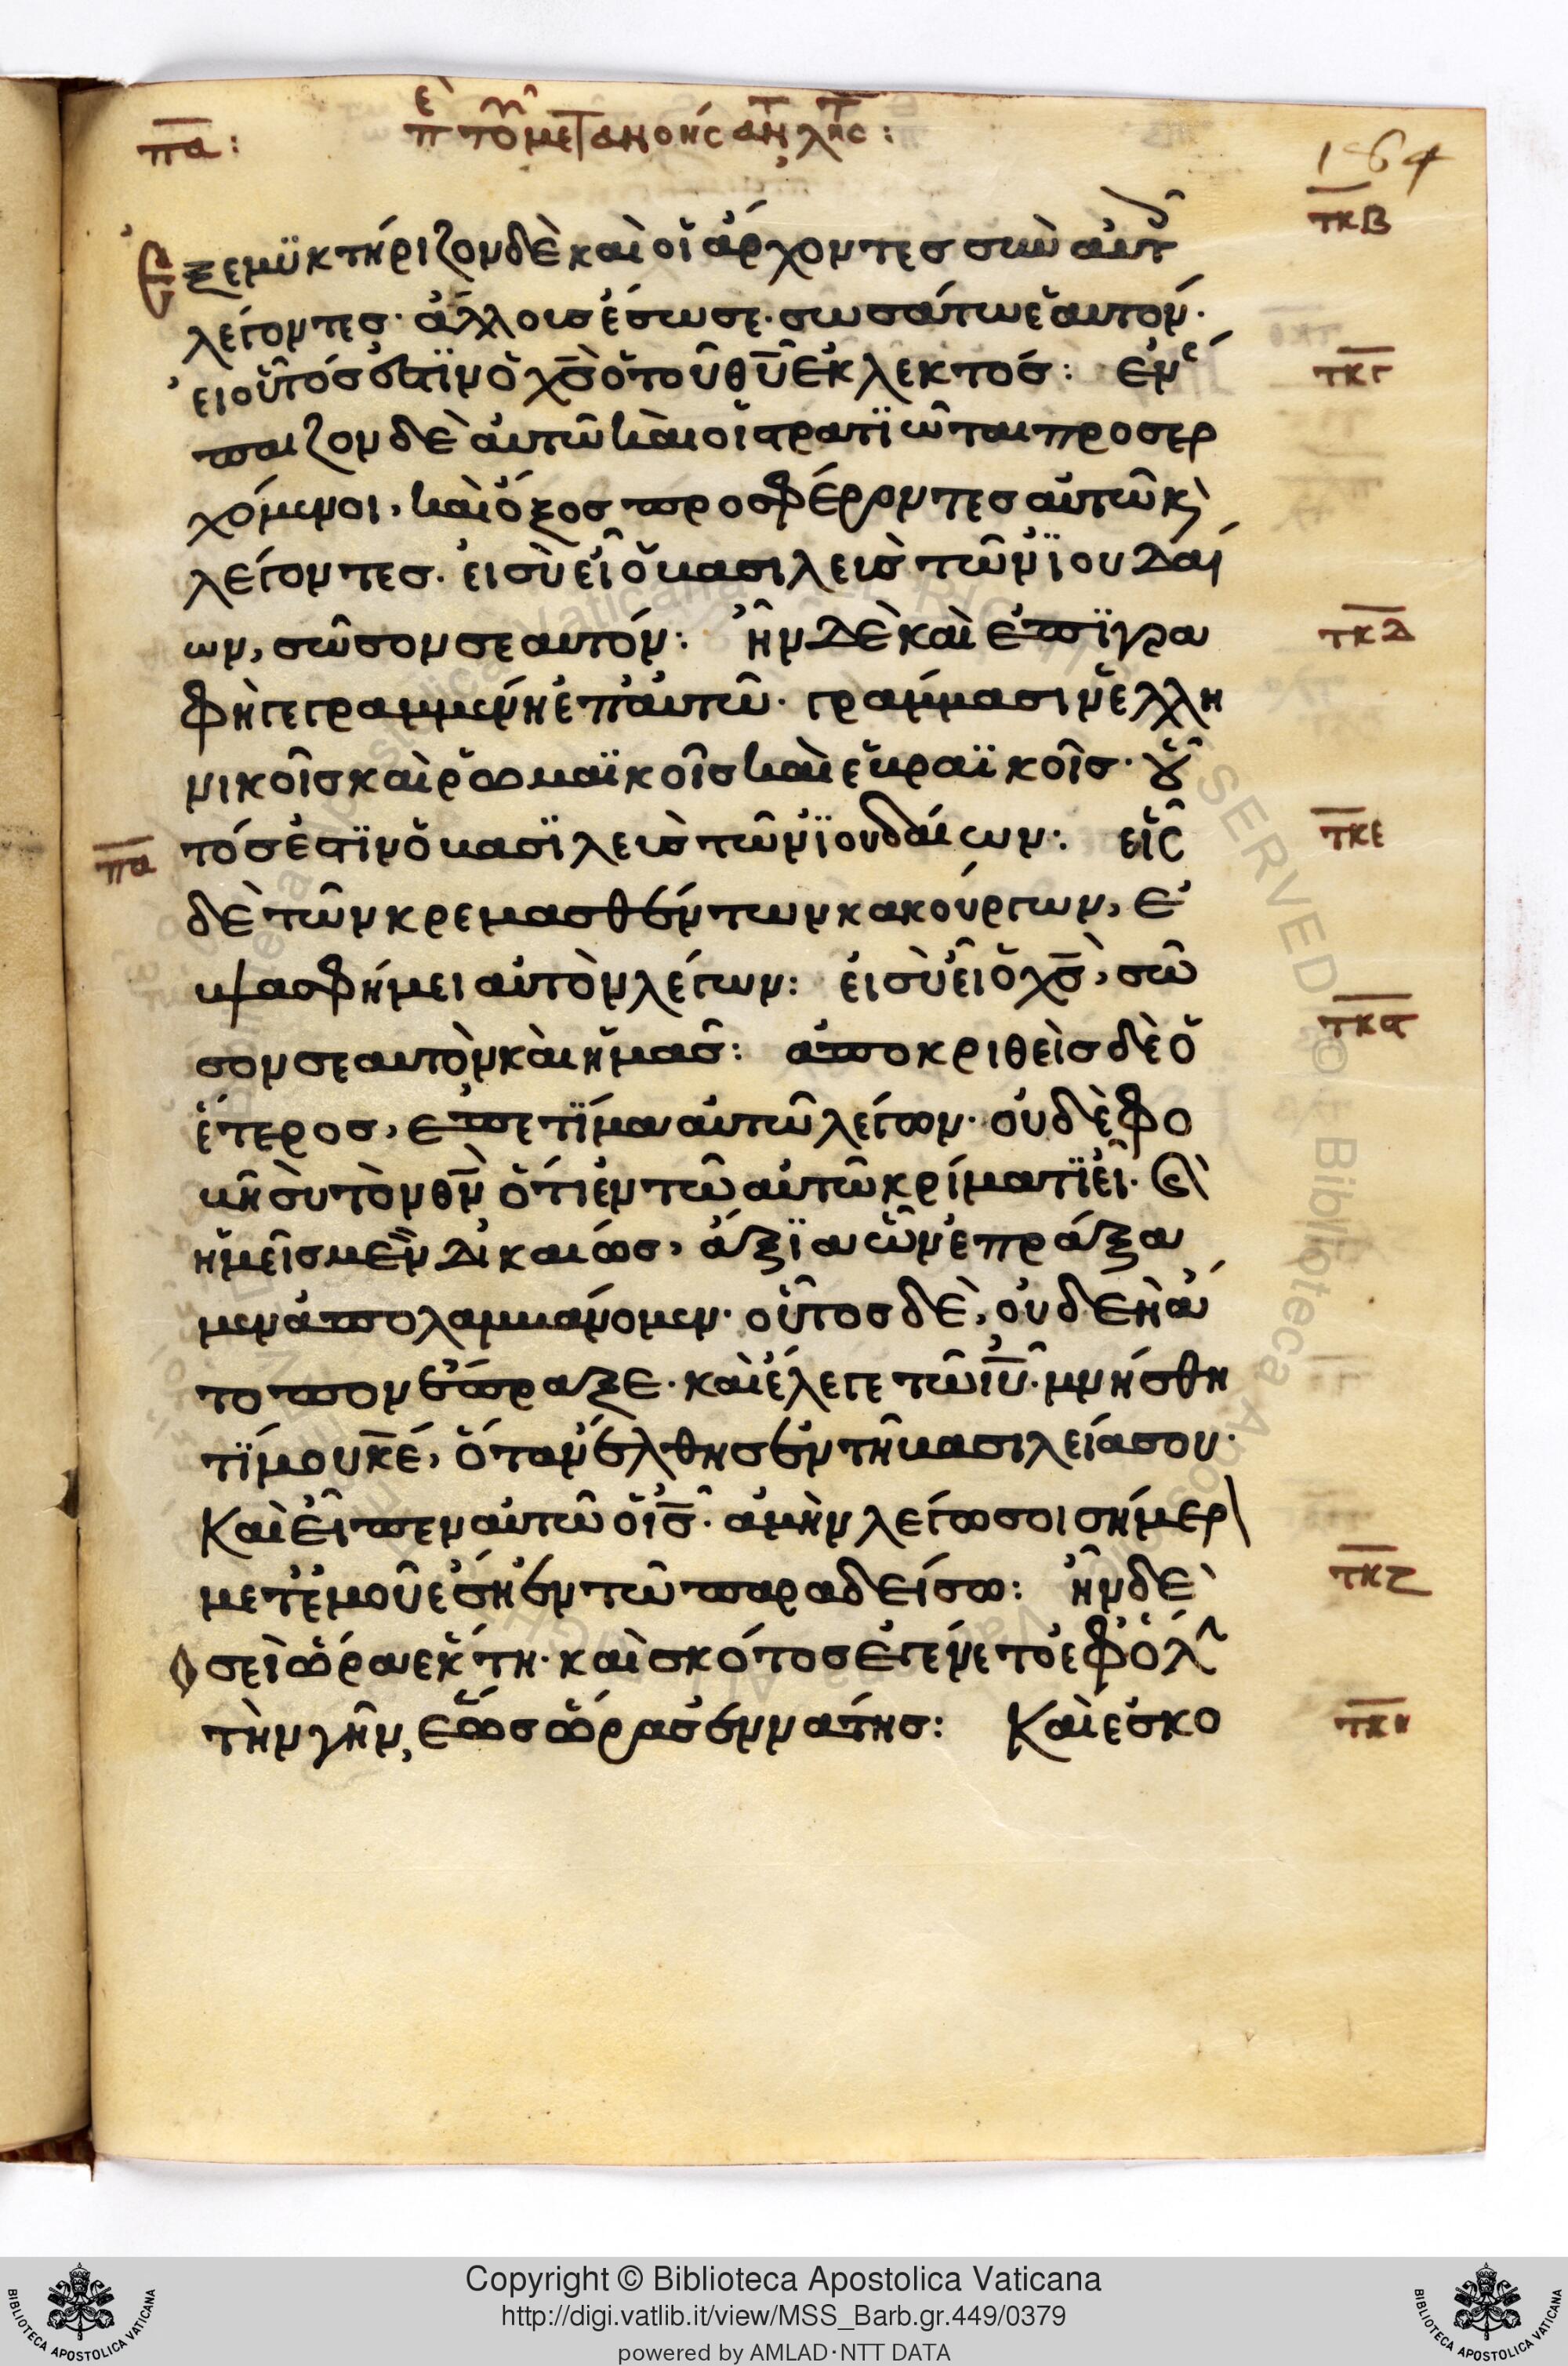 πα:
ἐπὶ τοῦ μετανοήσαντος ληστοῦ:
164
ἐξεμυκτήριζον δὲ καὶ οἱ ἄρχοντες σὺν αὐτ
τκβ
λέγοντες· ἄλλους ἔσωσε· σωσάτω ἑαυτόν·
εἰ οὗτός ἐστϊν ὁ χς ὁ τοῦ θυ ἐκλεκτός: ἐν
τκγ
παιζον δὲ αὐτῶ καὶ οἱ στρατϊῶται προσερ
χόμενοι, καὶ ὄξος προσφέροντες αὐτῶ κ
λέγοντες· εἰ σὺ εἶ ὁ βασιλεὺς τῶν ϊουδαί
ων, σῶσον σεαυτόν: ἦν δὲ καὶ ἐπϊγρα
τκδ
φὴ γεγραμμένη ἐπ αὐτῶ· γράμμασιν ἑλλη
νικοῖς καὶ ῥωμαϊκοῖς καὶ ἑβραϊκοῖς· οὗ
τός ἐστϊν ὁ βασϊλεὺς τῶν ϊουδαίων: εἷς
τκε
πα
δὲ τῶν κρεμασθέντων κακούργων, ἐ
βλασφήμει αὐτὸν λέγων: εἰ σὺ εἶ ὁ χς, σῶ
σον σεαυτὸν καὶ ἡμᾶς: ἀποκριθεὶς δὲ ὁ
τκϛ
ἕτερος, ἐπετϊμα αὐτῶ λέγων· οὐδὲ φο
βῆ σὺ τὸν θν ὅτι ἐν τῶ αὐτῶ κρίματϊ εἶ· καὶ
ἡμεῖς μὲν δικαίως, ἄξϊα ὧν ἐπράξα
μεν ἀπολαμβάνομεν· οὗτος δὲ, οὐδὲν ἄ
τοπον ἔπραξε· καὶ ἔλεγε τῶ ιυ· μνήσθη
τϊ μου κε, ὅταν ἔλθης ἐν τῆ βασιλεία σου·
Καὶ εἶπεν αὐτῶ ὁ ις· ἀμὴν λέγω σοι σήμερ
μετ ἐμοῦ ἔση ἐν τῶ παραδείσω: ἦν δὲ
τκζ
ὡσεὶ ὥρα ἕκτη· καὶ σκότος ἐγένετο ἐφ ὅλ
τὴν γῆν, ἕως ὥρας ἐννάτης: Καὶ ἐσκο
τκη
Copyright © Biblioteca Apostolica Vaticana
http://digi.vatlib.it/view/MSS_Barb.gr.449/0379
powered by AMLAD·NTT DATA
BIBLIOTECA APOSTOLICA VATICANA
BIBLIOTECA APOSTOLICA VATICANA